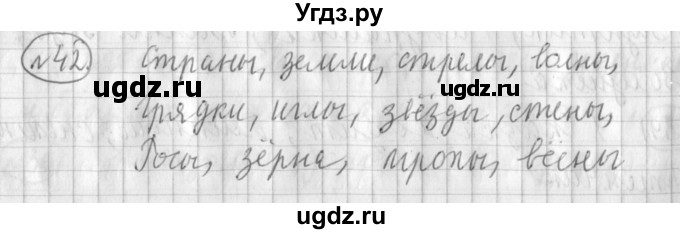 Угдз.ру
№42. Страны, земли, стрелы, волны,
ugdz.ru ugdz.ru
грядки, иглы, звёзды, стены,
Росы, зёрна, тропы, вёсны
ugdz.ru ugdz.ru
ugdz.ru